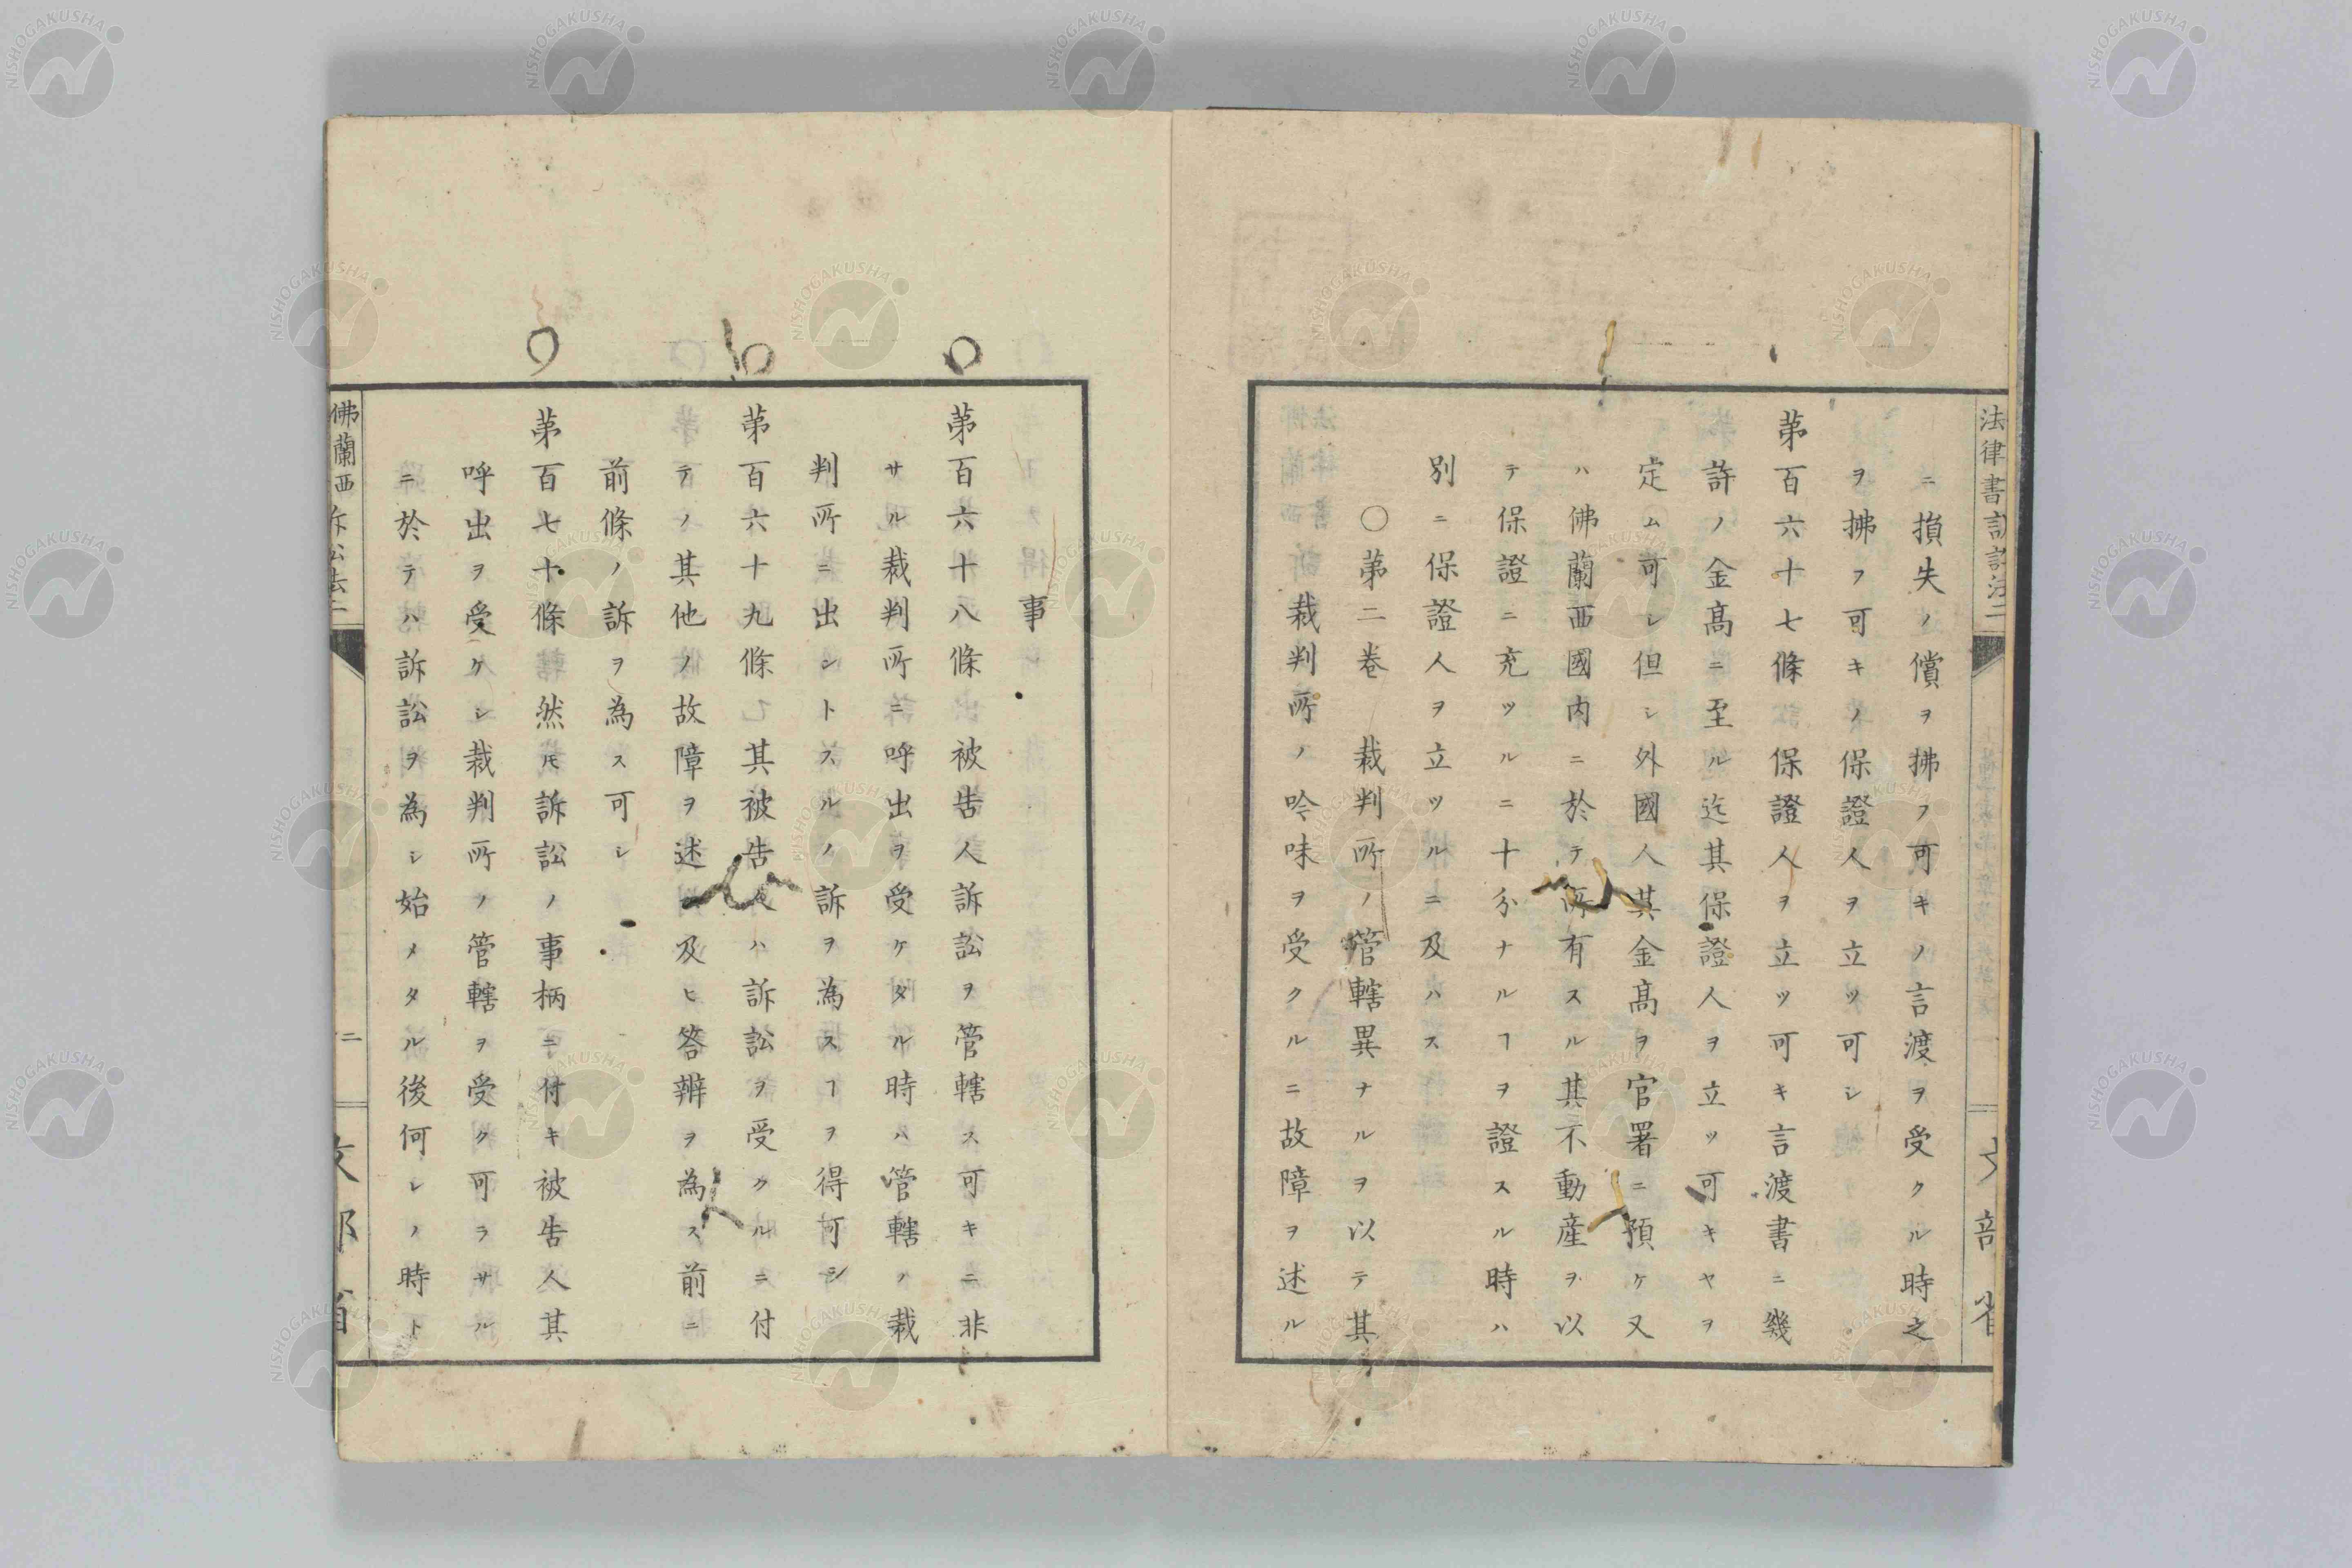 ニ損失ノ償ヲ拂フ可キノ言渡ヲ受クル時之
ヲ拂フ可キノ保證人ヲ立ツ可シ
第百六十七條 保證人ヲ立ツ可キ言渡書ニ幾
許ノ金高ニ至ル迄其保證人ヲ立ツ可キヤヲ
定ム可シ但シ外國人其金高ヲ官署ニ預ケ又
ハ佛蘭西國内ニ於テ所有スル其不動産ヲ以
テ保證ニ充ツルニ十分ナルヿヲ證スル時ハ
別ニ保證人ヲ立ツルニ及ハス
〇第二巻 裁判所ノ管轄異ナルヲ以テ其
裁判所ノ吟味ヲ受クルニ故障ヲ述ル
事
第百六十八條 被告人訴訟ヲ管轄ス可キニ非
サル裁判所ニ呼出ヲ受ケタル時ハ管轄ノ裁
判所ニ出シトスルノ訴ヲ為スヿヲ得可シ
第百六十九條 其被告人ハ訴訟ヲ受クルニ付
テノ其他ノ故障ヲ述及ヒ答辨ヲ為ス前ニ
前條ノ訴ヲ為ス可シ
第百七十條 然𪜈訴訟ノ事柄ニ付キ被告人其
呼出ヲ受ケシ裁判所ノ管轄ヲ受ク可ラサル
ニ於テハ訴訟ヲ為シ始メタル後何レノ時ト
佛蘭西
二
NISHOGAKUSHA